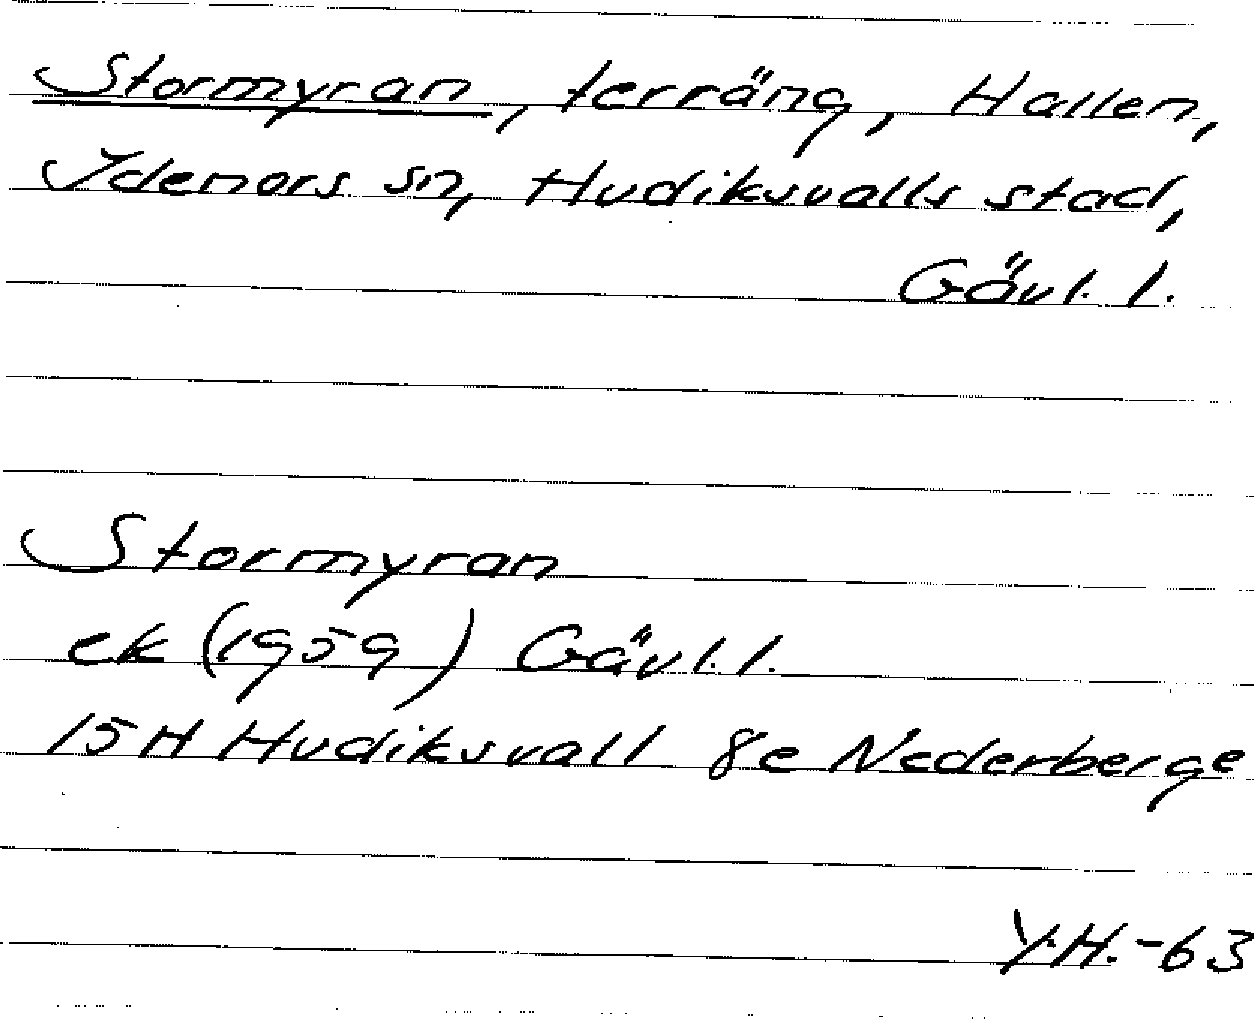 Stormyran, terräng, Hallen,
Idenors sn, Hudiksvalls stad,
Gävl. l.
Stormyran
ek (1959) Gävl. l.
15H Hudiksvall 8e Nederberge
Y.H.-63